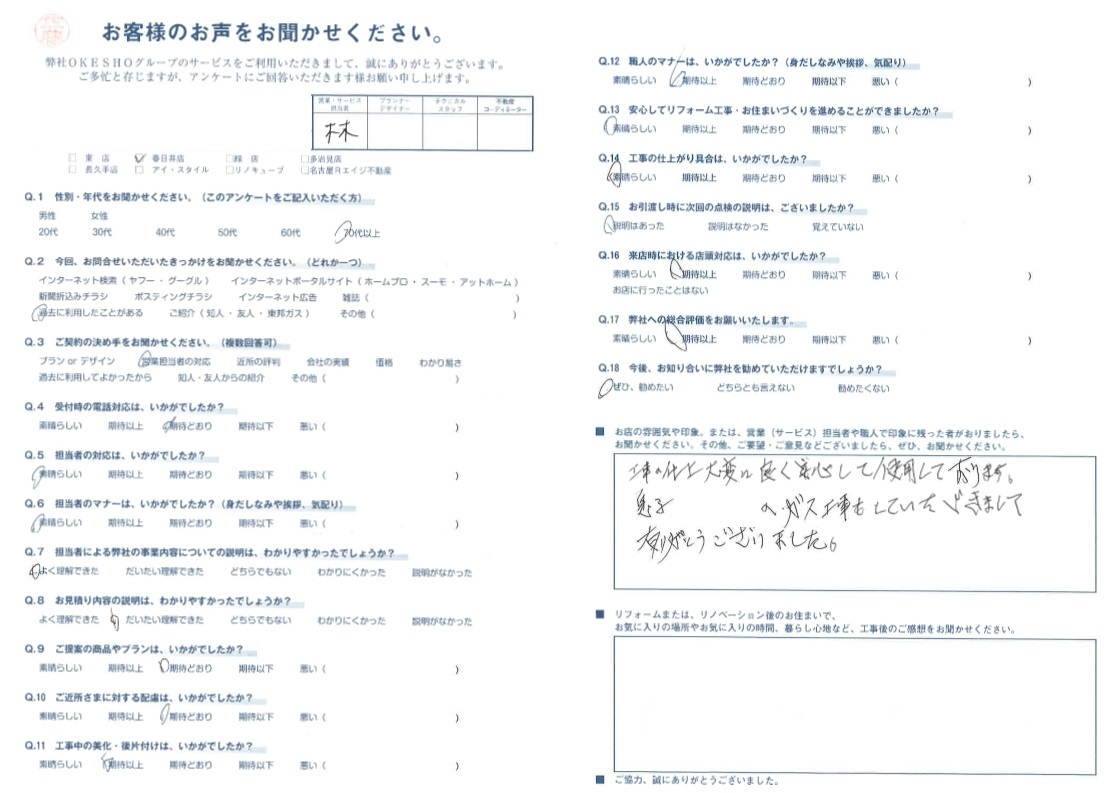 お客様のお声をお聞かせください。
弊社OKESHOグループのサービスをご利用いただきまして、誠にありがとうございます。
ご多忙と存じますが、アンケートにご回答いただきます様お願い申し上げます。
営業・サービス担当者 プランナーデザイナー テクニカルスタッフ 不動産コーディネーター
林
□ 東 店 ☑ 春日井店 □緑 店 □多治見店
□ 長久手店 □ アイ・スタイル □リノキューブ □名古屋Rエイジ不動産
Q.1 性別・年代をお聞かせください。（このアンケートをご記入いただく方）
男性 女性
20代 30代 40代 50代 60代 70代以上
Q.2 今回、お問合せいただいたきっかけをお聞かせください。（どれか一つ）
インターネット検索（ ヤフー ・ グーグル ） インターネットポータルサイト（ ホームプロ ・ スーモ ・ アットホーム ）
新聞折込みチラシ ポスティングチラシ インターネット広告 雑誌（ ）
過去に利用したことがある ご紹介（ 知人 ・ 友人 ・ 東邦ガス ） その他（ ）
Q.3 ご契約の決め手をお聞かせください。（複数回答可）
プラン or デザイン 営業担当者の対応 近所の評判 会社の実績 価格 わかり易さ
過去に利用してよかったから 知人・友人からの紹介 その他（ ）
Q.4 受付時の電話対応は、いかがでしたか？
素晴らしい 期待以上 期待どおり 期待以下 悪い（ ）
Q.5 担当者の対応は、いかがでしたか？
素晴らしい 期待以上 期待どおり 期待以下 悪い（ ）
Q.6 担当者のマナーは、いかがでしたか？（身だしなみや挨拶、気配り）
素晴らしい 期待以上 期待どおり 期待以下 悪い（ ）
Q.7 担当者による弊社の事業内容についての説明は、わかりやすかったでしょうか？
よく理解できた だいたい理解できた どちらでもない わかりにくかった 説明がなかった
Q.8 お見積り内容の説明は、わかりやすかったでしょうか？
よく理解できた だいたい理解できた どちらでもない わかりにくかった 説明がなかった
Q.9 ご提案の商品やプランは、いかがでしたか？
素晴らしい 期待以上 期待どおり 期待以下 悪い（ ）
Q.10 ご近所さまに対する配慮は、いかがでしたか？
素晴らしい 期待以上 期待どおり 期待以下 悪い（ ）
Q.11 工事中の美化・後片付けは、いかがでしたか？
素晴らしい 期待以上 期待どおり 期待以下 悪い（ ）
Q.12 職人のマナーは、いかがでしたか？（身だしなみや挨拶、気配り）
素晴らしい 期待以上 期待どおり 期待以下 悪い（ ）
Q.13 安心してリフォーム工事・お住まいづくりを進めることができましたか？
素晴らしい 期待以上 期待どおり 期待以下 悪い（ ）
Q.14 工事の仕上がり具合は、いかがでしたか？
素晴らしい 期待以上 期待どおり 期待以下 悪い（ ）
Q.15 お引渡し時に次回の点検の説明は、ございましたか？
説明はあった 説明はなかった 覚えていない
Q.16 来店時における店頭対応は、いかがでしたか？
素晴らしい 期待以上 期待どおり 期待以下 悪い（ ）
お店に行ったことはない
Q.17 弊社への総合評価をお願いいたします。
素晴らしい 期待以上 期待どおり 期待以下 悪い（ ）
Q.18 今後、お知り合いに弊社を勧めていただけますでしょうか？
ぜひ、勧めたい どちらとも言えない 勧めたくない
■ お店の雰囲気や印象。または、営業（サービス）担当者や職人で印象に残った者がおりましたら、
お聞かせください。その他、ご要望・ご意見などございましたら、ぜひ、お聞かせください。
工事の仕上大変に良く安心して使用して おります。
息子 の ガス工事もしていただきまして
有りがとうございました。
■ リフォームまたは、リノベーション後のお住まいで、
お気に入りの場所やお気に入りの時間、暮らし心地など、工事後のご感想をお聞かせください。
■ ご協力、誠にありがとうございました。